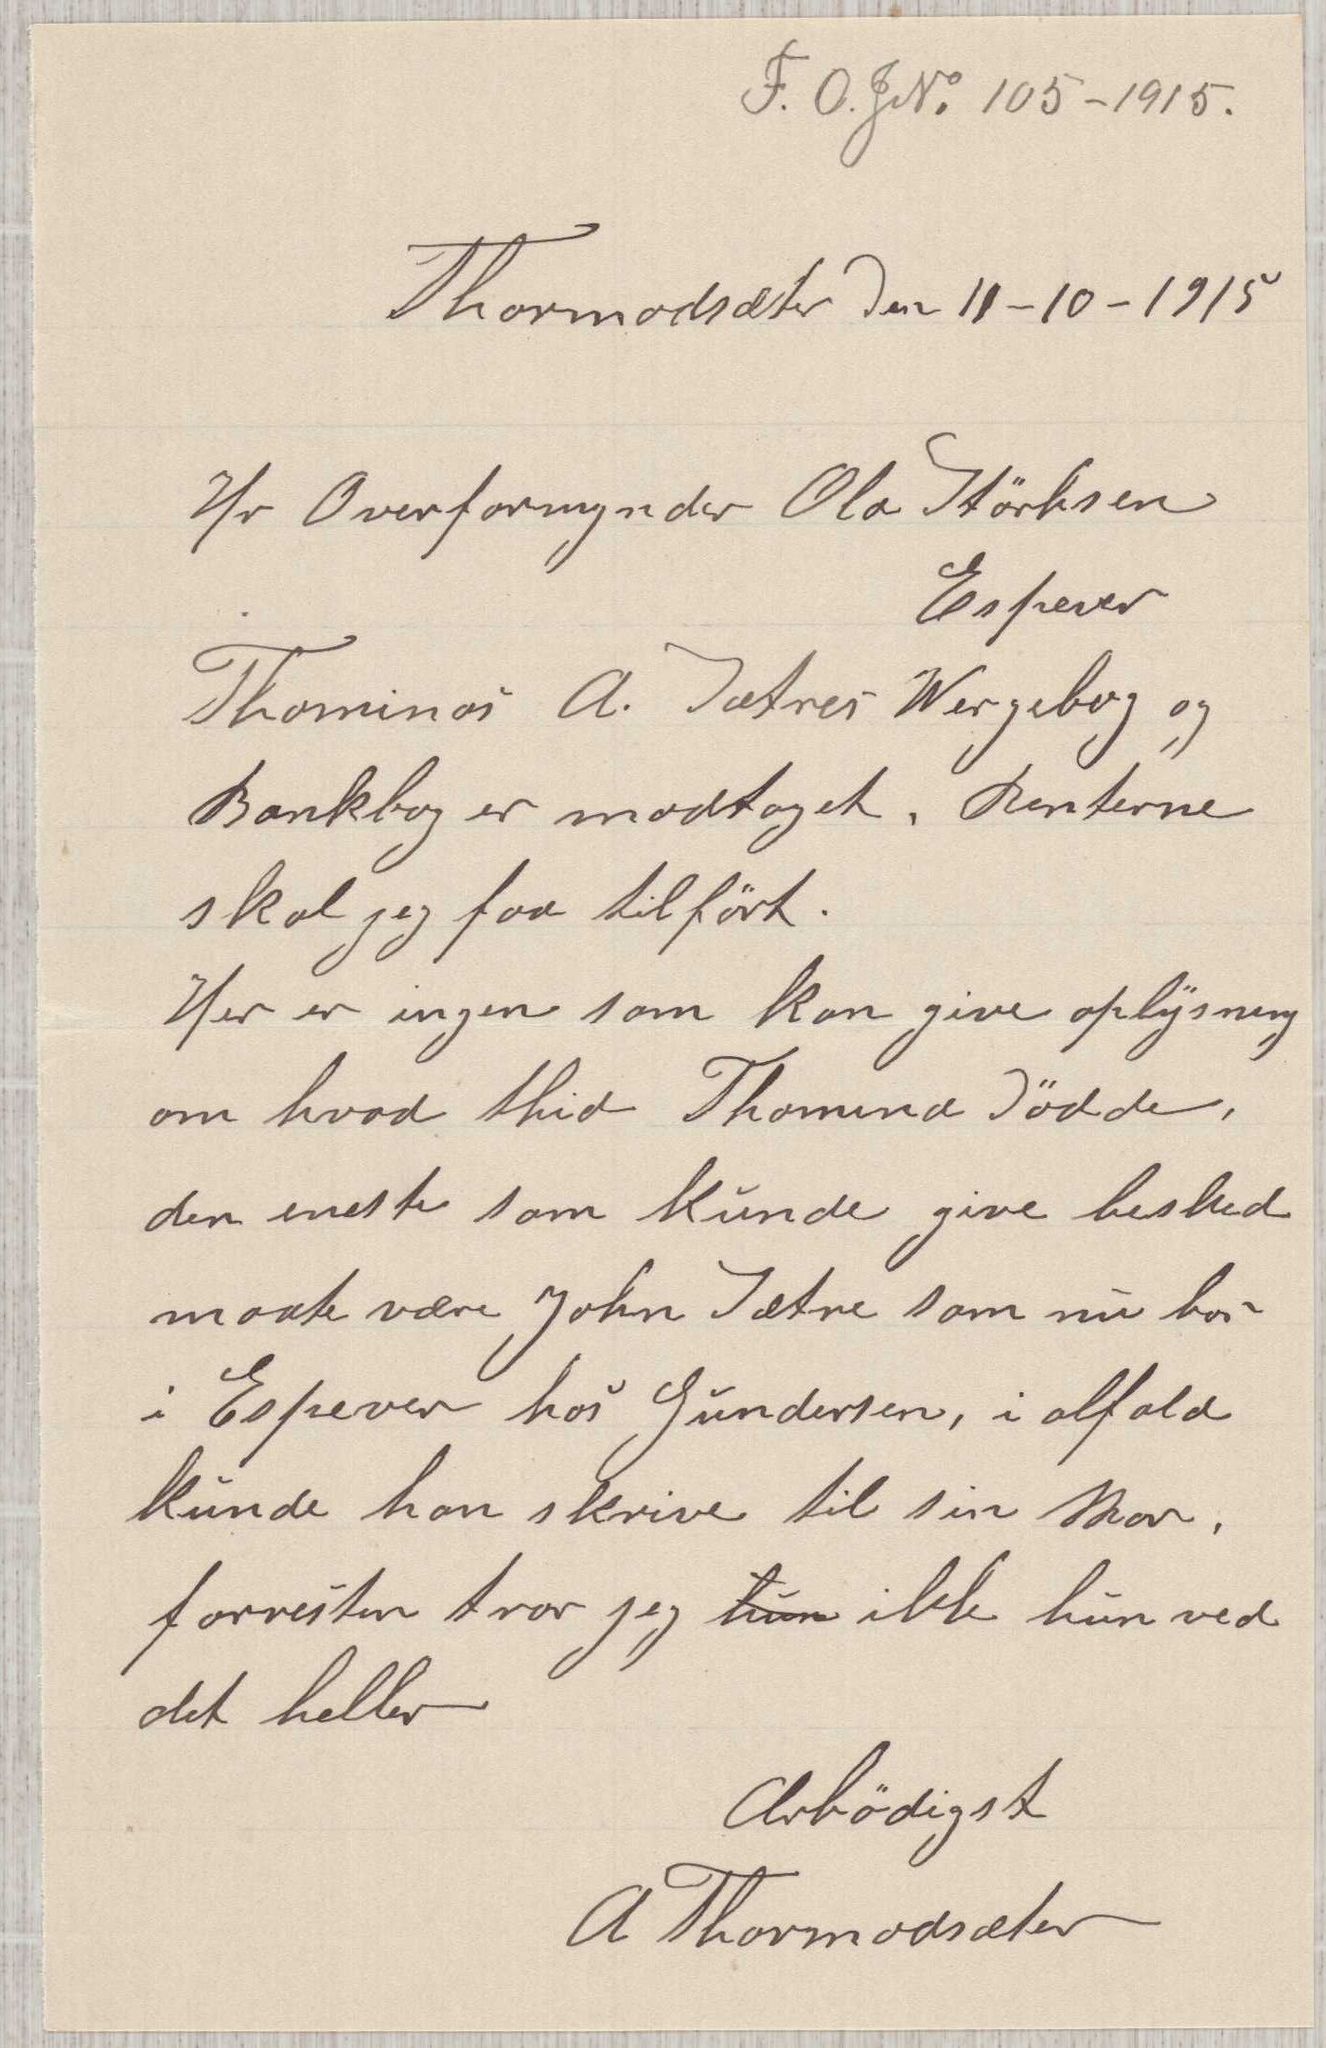 F. O. J.No. 105-1915.
Thormodsæter Den 11-10-1915
Hr Overformynder Ola Störksen
Espever
Thominas A. Sætres Wergebog og
Bankbog er modtaget, Renterne
skal jeg faa tilfört.
Her er ingen som kan give oplysning
om hvad thid Thomina Dödde,
den eneste som kunde give besked
maate være John Sætre som nu bor
i Espever hos Gundersen, i alfald
kunde han skrive til sin Mor,
forresten tror jeg hun ikke hun ved
det heller
Ærbödigst
A Thormodsæter